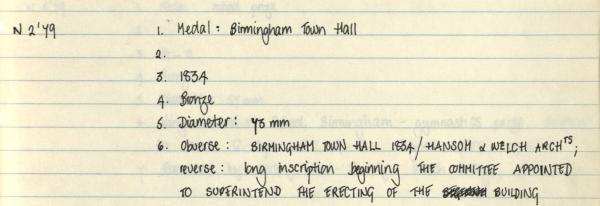 N 2'49 1. Medal: Birmingham Town Hall
2.
3. 1834
4. Bronze
5. Diameter: 48 mm
6. Obverse: BIRMINGHAM TOWN HALL 1834/HANSOM & WELCH ARCHTS;
reverse: long inscription beginning THE COMMITTEE APPOINTED
TO SUPERINTEND THE ERECTING OF THE BUILDING